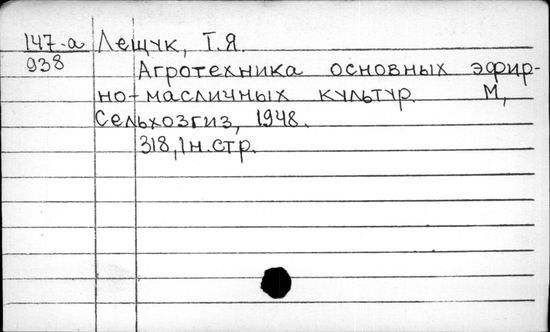 147-а Лещук, Т.Я.
938
Агротехника основных эфир-
но-масличных культур. М,
Сельхозгиз, 1948.
318,1н.стр.